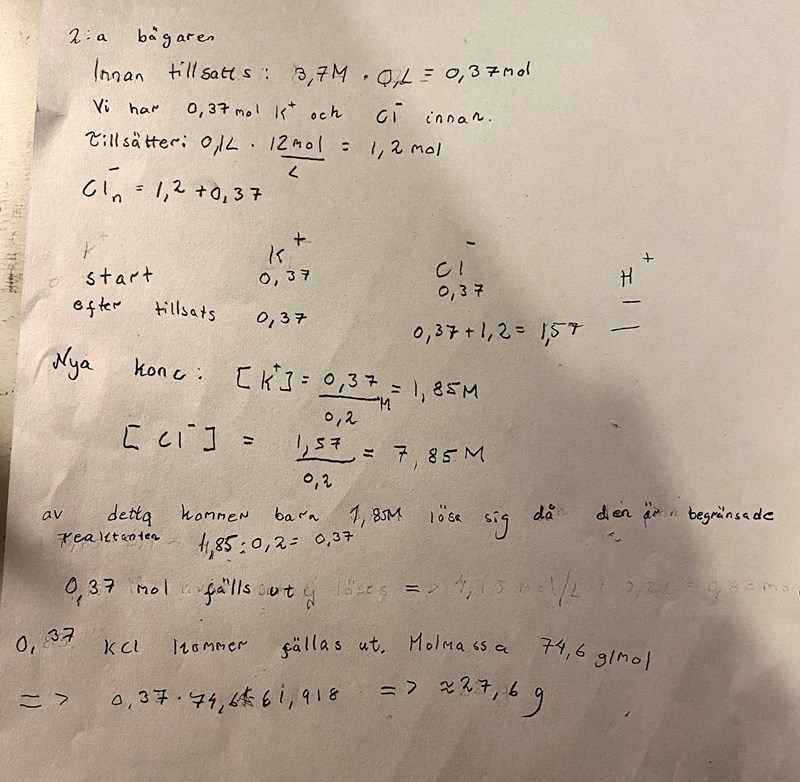 2:a bägaren
Innan tillsatts: 3,7M · 0,1L = 0,37mol
Vi har 0,37 mol K⁺ och Cl⁻ innan.
Tillsätter: 0,1L · 12mol/L = 1,2 mol
Cl⁻n = 1,2 + 0,37
K⁺ Cl⁻ H⁺
start 0,37 0,37 —
efter tillsats 0,37 0,37 + 1,2 = 1,57 —
Nya konc: [K⁺] = 0,37/0,2 M = 1,85M
[Cl⁻] = 1,57/0,2 = 7,85M
av detta kommer bara 1,85M lösa sig då den är begränsade
reaktanten 1,85 · 0,2 = 0,37
0,37 mol fälls ut
0,37 KCl kommer fällas ut. Molmassa 74,6 g/mol
=> 0,37 · 74,6 => ≈27,6 g